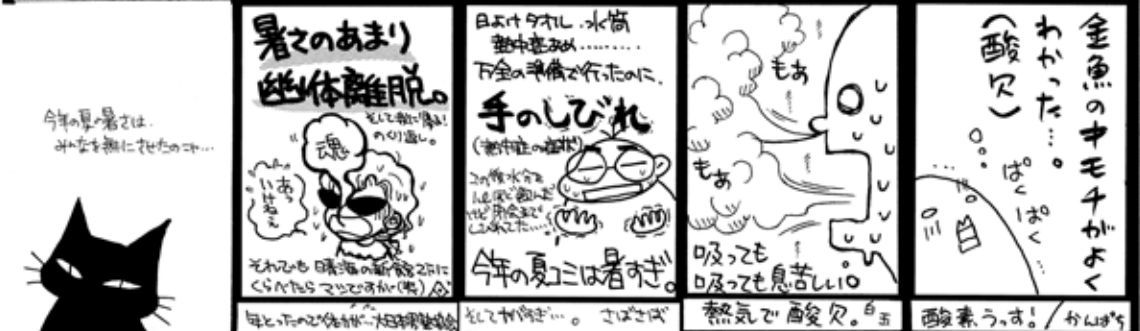 金魚のキモチがよく
わかった…。
（酸欠）
ぱくぱく
酸素、うっす！/かんぱち
もあ
もあ
吸っても
吸っても息苦しい。
熱気で酸欠。白玉
日よけタオル、水筒
熱中症あめ………
万全の準備で行ったのに、
手のしびれ
（熱中症の症状）
この後水分を
しびれてた……
今年の夏コミは暑すぎ。
そしてヤバすぎ…。さばさば
暑さのあまり
幽体離脱。
のくり返し。
魂
あっ
いけねぇ
それでも日本海の
くらべたらマシですが(笑)
今年の夏の暑さは、
みんなを無にさせたのニャ…